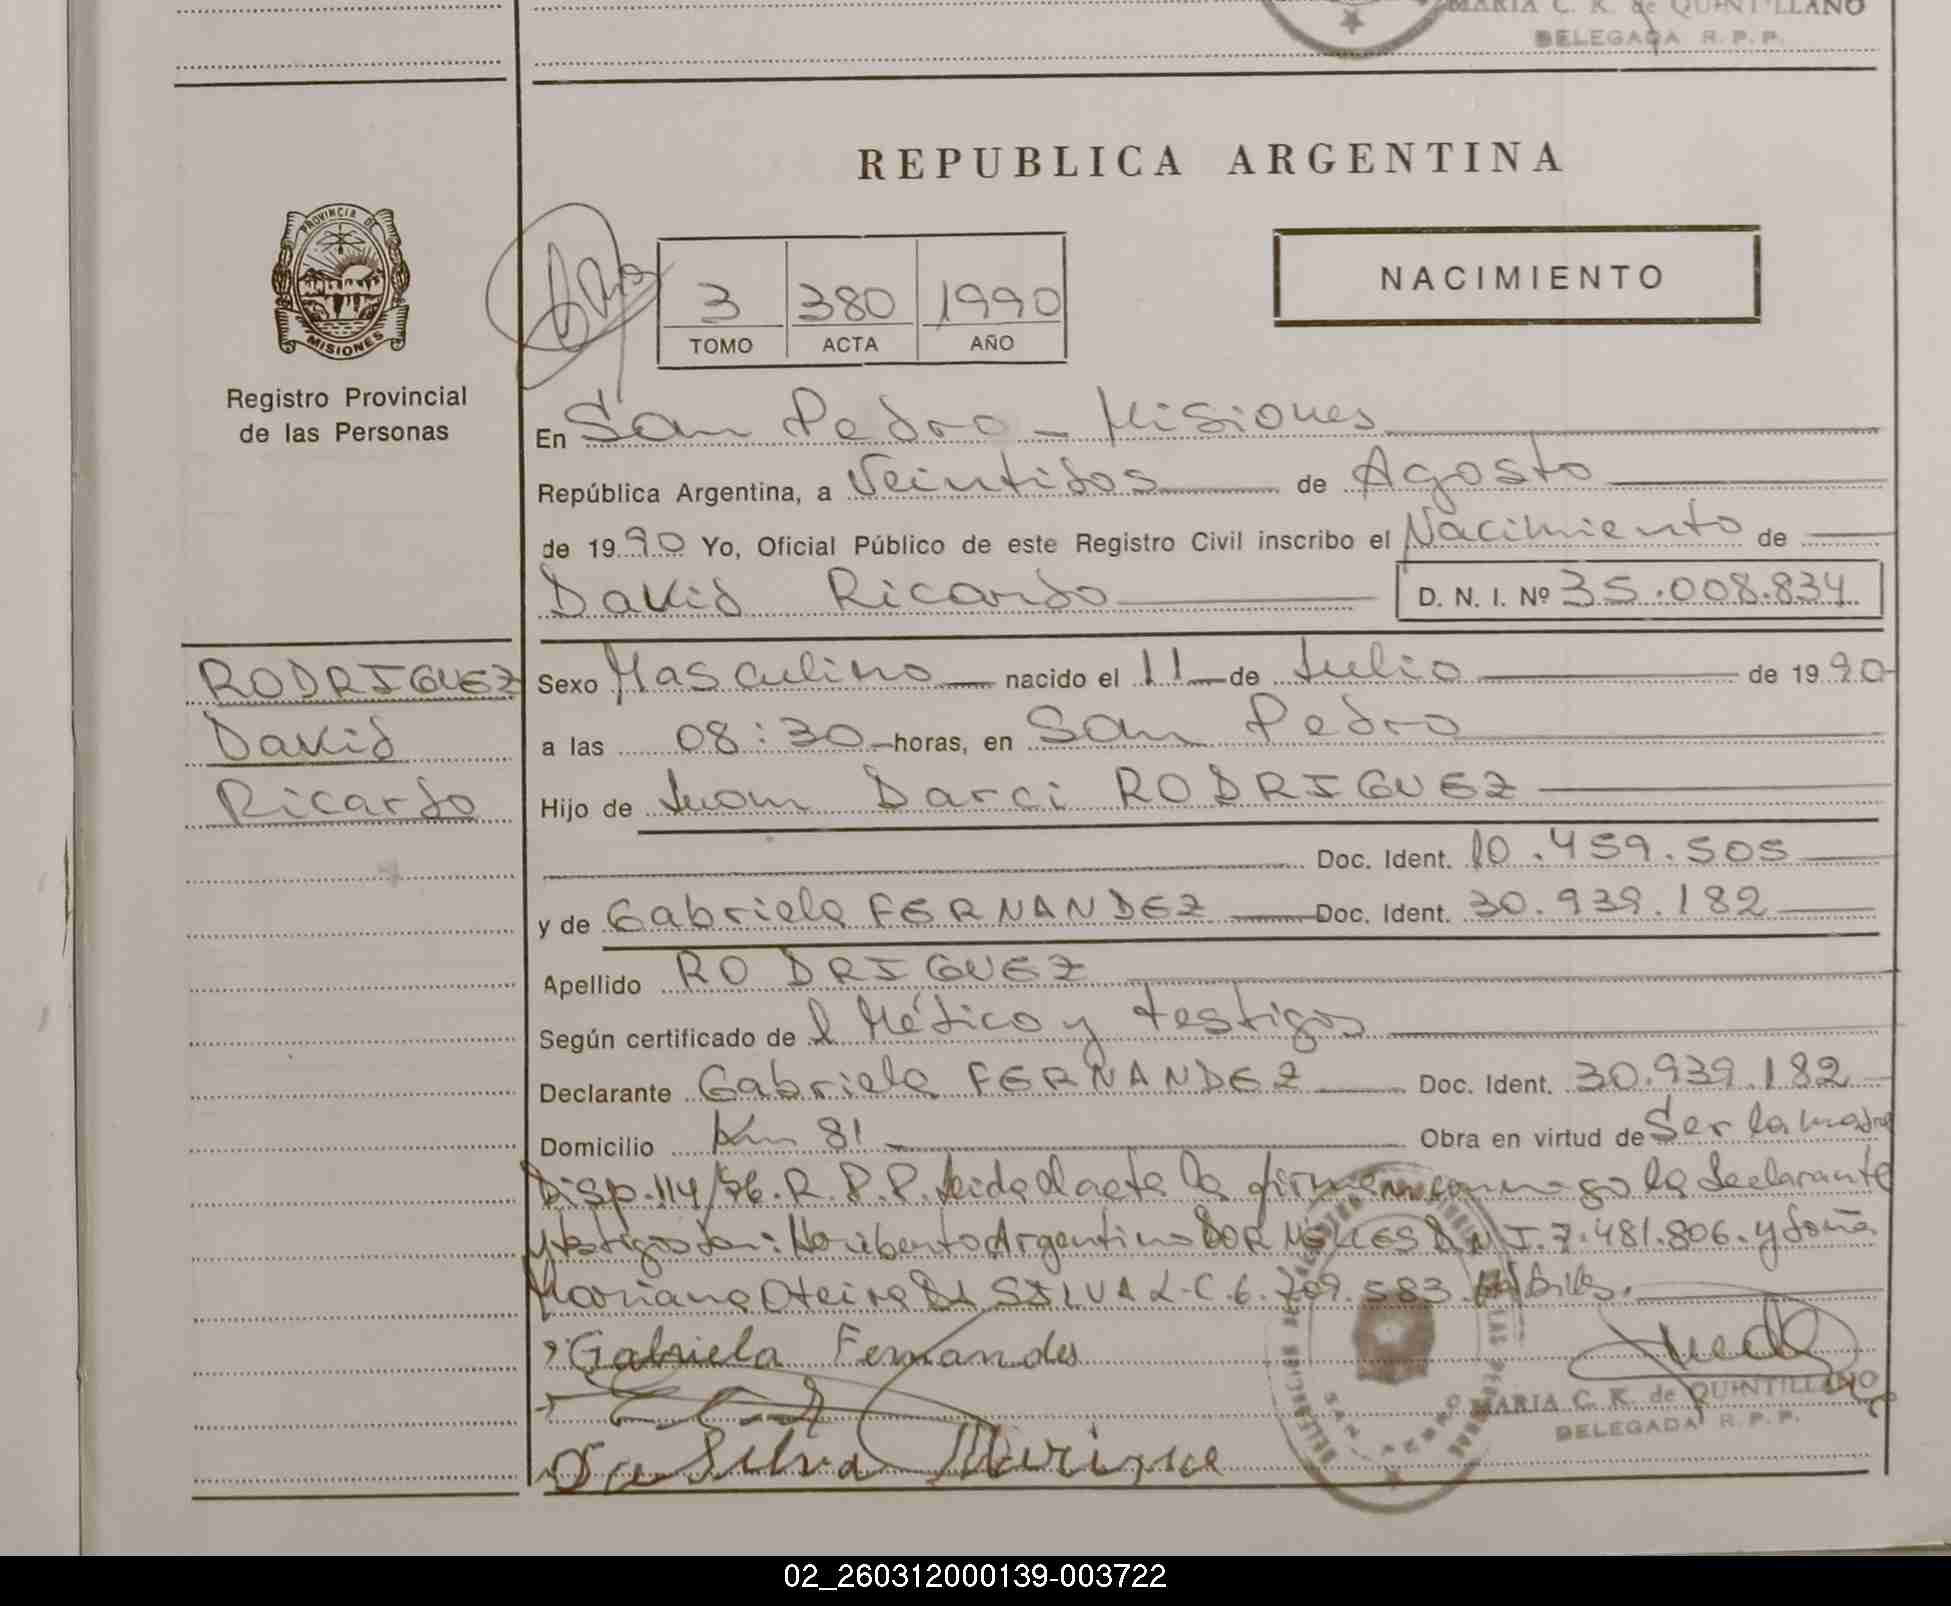 MARIA C. K. de QUINTILLANO
DELEGADA R. P. P.
REPUBLICA ARGENTINA
PROVINCIA DE
MISIONES
Registro Provincial
de las Personas
3 380 1990
TOMO ACTA AÑO
NACIMIENTO
En San Pedro - Misiones
República Argentina, a Veintidos de Agosto
de 1990 Yo, Oficial Público de este Registro Civil inscribo el Nacimiento de
David Ricardo D. N. I. Nº 35.008.834
RODRIGUEZ
David
Ricardo
Sexo Masculino nacido el 11 de Julio de 1990
a las 08:30 horas, en San Pedro
Hijo de Juan Darci RODRIGUEZ
Doc. Ident. 10.459.505
y de Gabriela FERNANDEZ Doc. Ident. 30.939.182
Apellido RODRIGUEZ
Según certificado de l Médico y testigos
Declarante Gabriela FERNANDEZ Doc. Ident. 30.939.182
Domicilio Km 81 Obra en virtud de Ser la madre
Disp. 114/86. R.P.P. leida el acta la firman conmigo la declarante
y testigos Don: Heriberto Argentino DORNELLES D.N.I. 7.481.806. y doña
Mariana Oteira DA SILVA L.C. 6.709.583. hábiles.
Gabriela Fernandes
Da Silva
MARIA C. K. de QUINTILLANO
DELEGADA R. P. P.
02_260312000139-003722